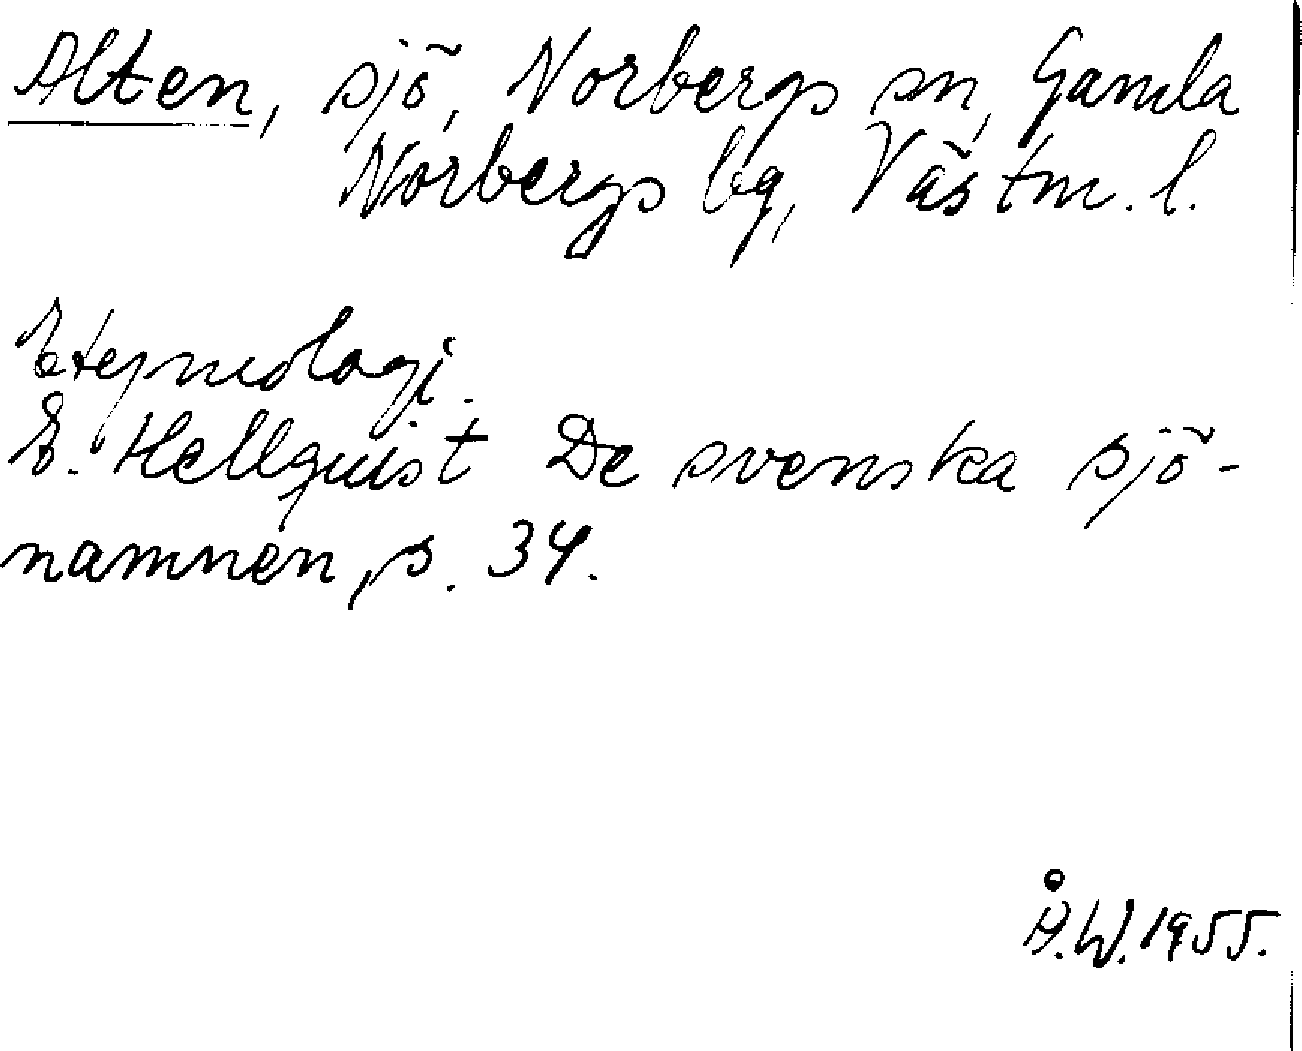 Alten, sjö, Norbergs sn, Gamla
Norbergs bg, Västm. l.
Etymologi.
E. Hellquist De svenska sjö-
namnen, s. 34.
Å.W. 1955.